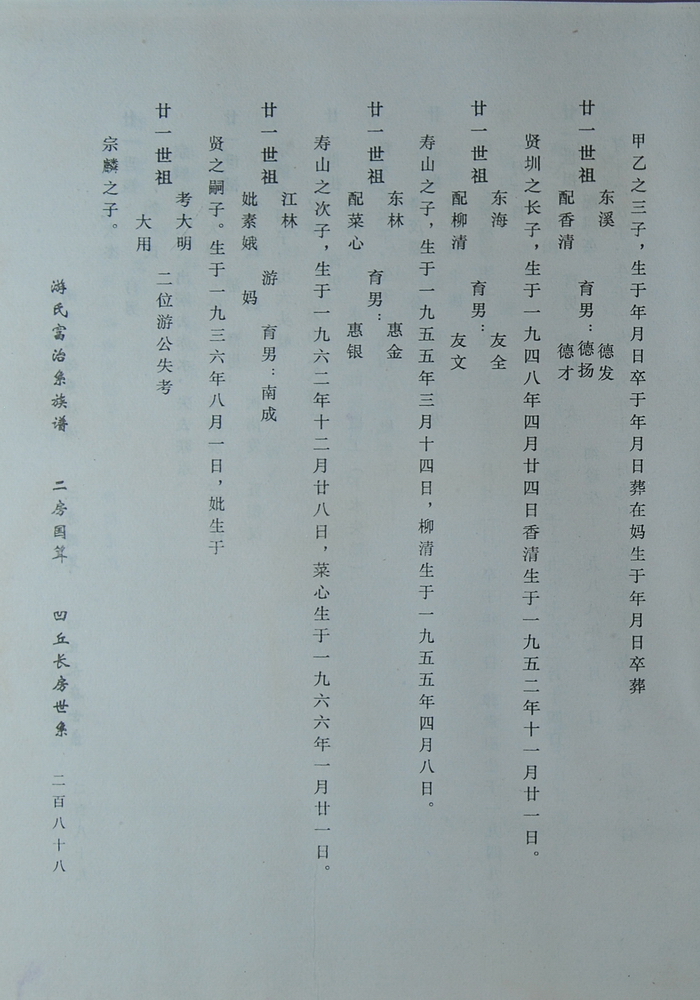 甲乙之三子，生于年月日卒于年月日葬在妈生于年月日卒葬
廿一世祖
东溪
配香清
育男：德扬
德发
德才
贤圳之长子，生于一九四八年四月廿四日香清生于一九五二年十一月廿一日。
廿一世祖
东海
配柳清
育男：
友全
友文
寿山之子，生于一九五五年三月十四日，柳清生于一九五五年四月八日。
廿一世祖
东林
配菜心
育男：
惠金
惠银
寿山之次子，生于一九六二年十二月廿八日，菜心生于一九六六年一月廿一日。
廿一世祖
江林
妣素娥
游妈
育男：南成
贤之嗣子。生于一九三六年八月一日，妣生于
廿一世祖
考大明
大用
二位游公失考
宗麟之子。
游氏富治系族谱 二房国筭 凹丘长房世系 二百八十八